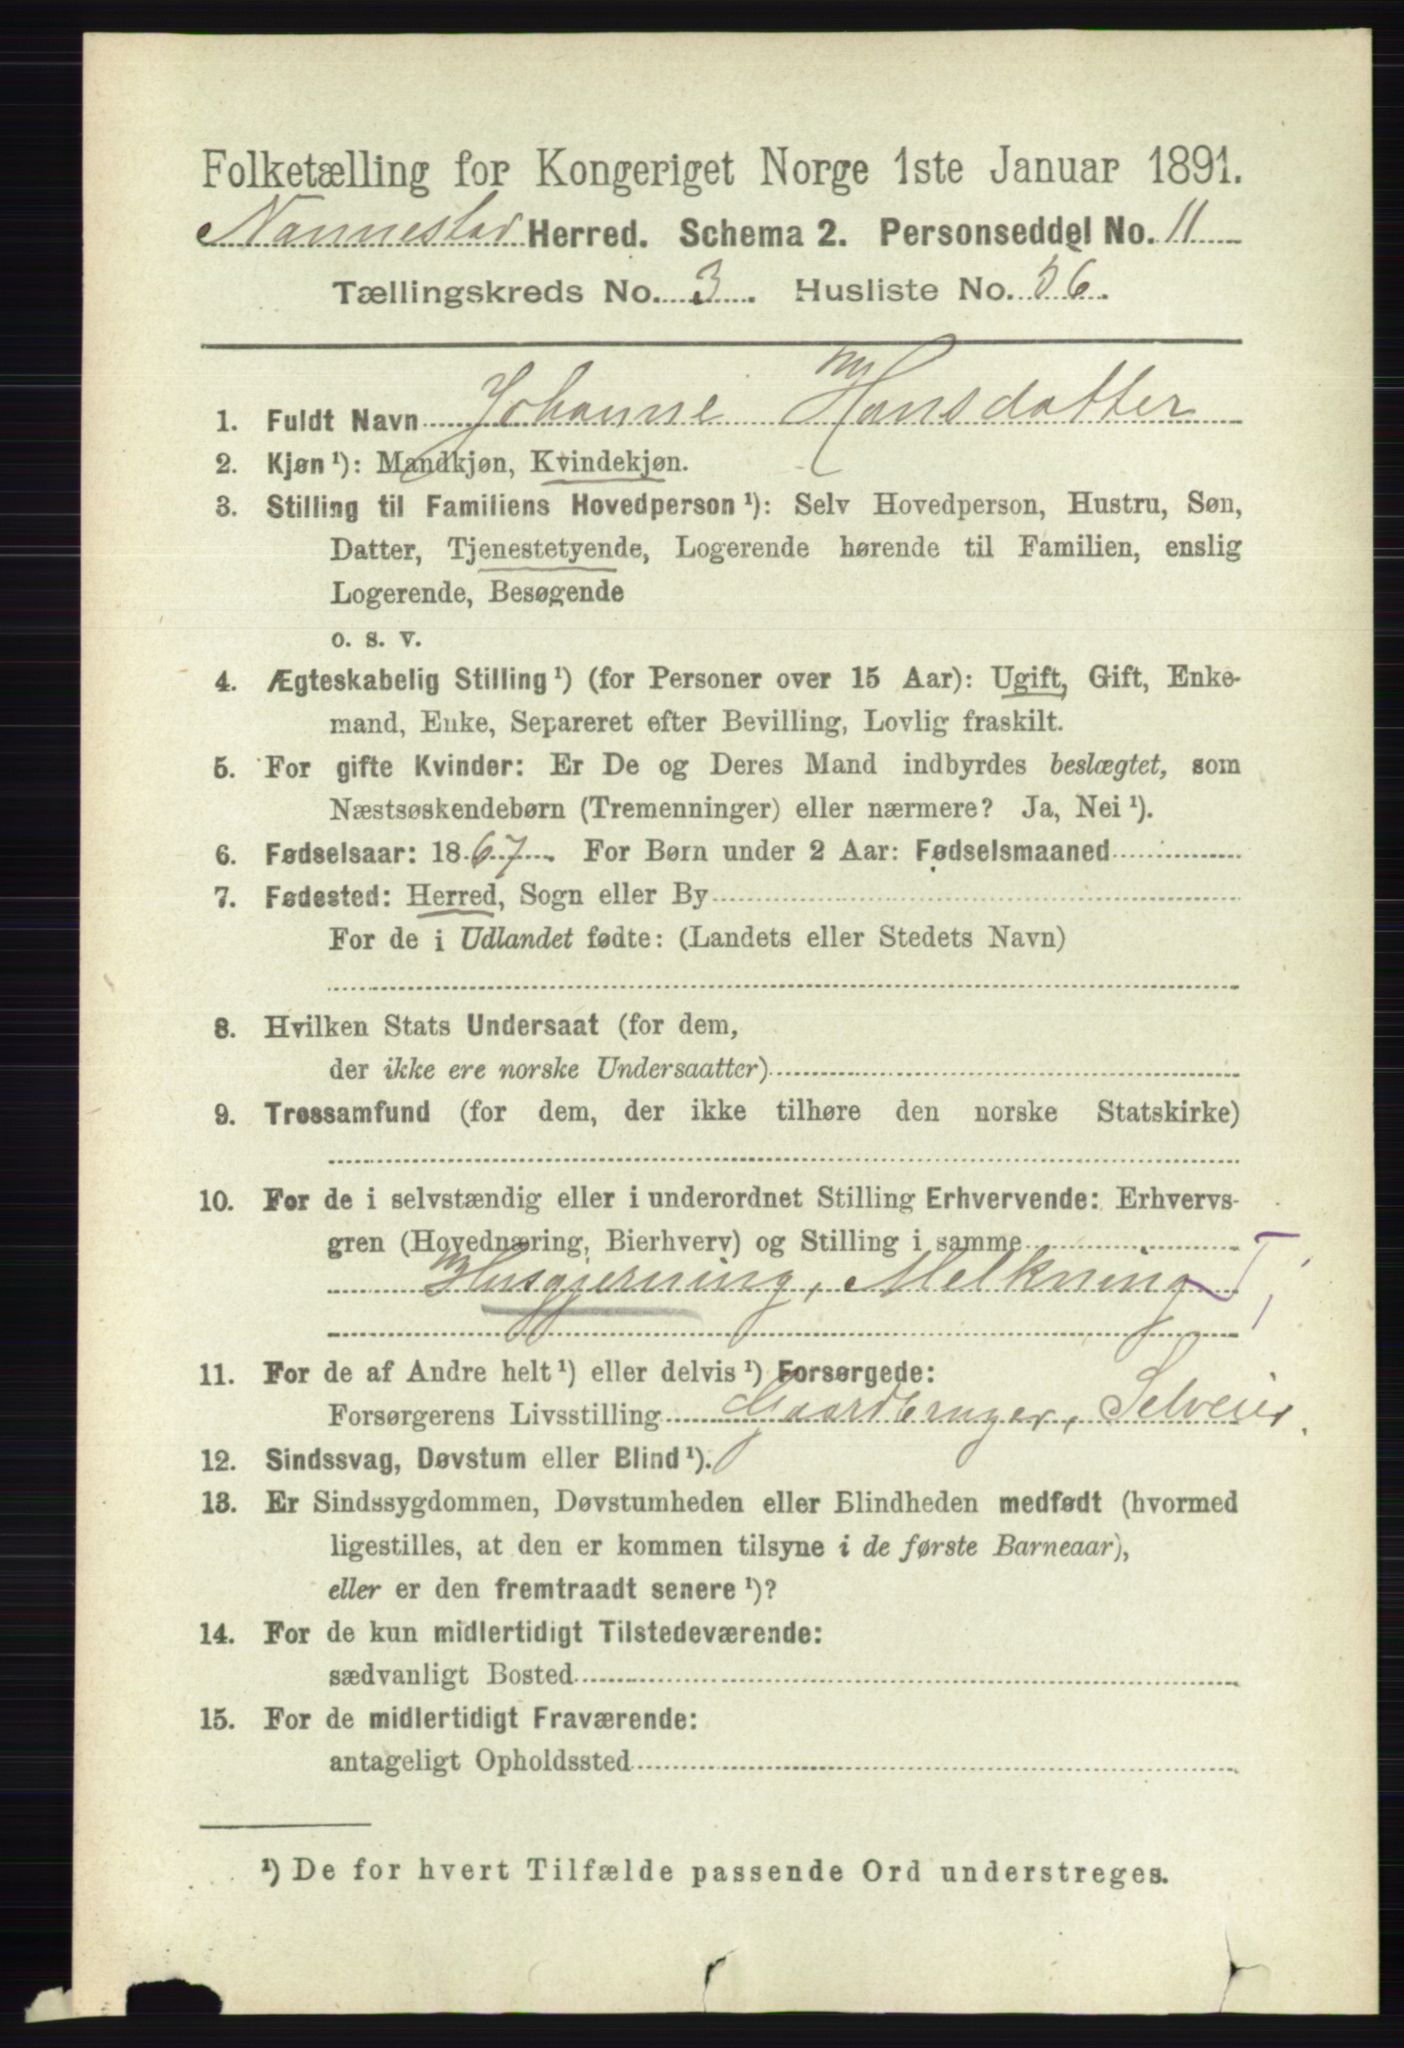 Folketælling for Kongeriget Norge 1ste Januar 1891.
Nannestad Herred. Schema 2. Personseddel No. 11
Tællingskreds No. 3. Husliste No. 56.
1. Fuldt Navn Johanne Hansdatter
2. Kjøn ¹): Mandkjøn, Kvindekjøn.
3. Stilling til Familiens Hovedperson ¹): Selv Hovedperson, Hustru, Søn,
Datter, Tjenestetyende, Logerende hørende til Familien, enslig
Logerende, Besøgende
o. s. v.
4. Ægteskabelig Stilling ¹) (for Personer over 15 Aar): Ugift, Gift, Enke-
mand, Enke, Separeret efter Bevilling, Lovlig fraskilt.
5. For gifte Kvinder: Er De og Deres Mand indbyrdes beslægtet, som
Næstsøskendebørn (Tremenninger) eller nærmere? Ja, Nei ¹).
6. Fødselsaar: 1867. For Børn under 2 Aar: Fødselsmaaned
7. Fødested: Herred, Sogn eller By
For de i Udlandet fødte: (Landets eller Stedets Navn)
8. Hvilken Stats Undersaat (for dem,
der ikke ere norske Undersaatter)
9. Trossamfund (for dem, der ikke tilhøre den norske Statskirke)
10. For de i selvstændig eller i underordnet Stilling Erhvervende: Erhvervs-
gren (Hovednæring, Bierhverv) og Stilling i samme
Husgjerning, Melkning
11. For de af Andre helt ¹) eller delvis ¹) Forsørgede:
Forsørgerens Livsstilling Gaardbruger, Selveier.
12. Sindssvag, Døvstum eller Blind ¹).
13. Er Sindssygdommen, Døvstumheden eller Blindheden medfødt (hvormed
ligestilles, at den er kommen tilsyne i de første Barneaar),
eller er den fremtraadt senere ¹)?
14. For de kun midlertidigt Tilstedeværende:
sædvanligt Bosted
15. For de midlertidigt Fraværende:
antageligt Opholdssted
¹) De for hvert Tilfælde passende Ord understreges.